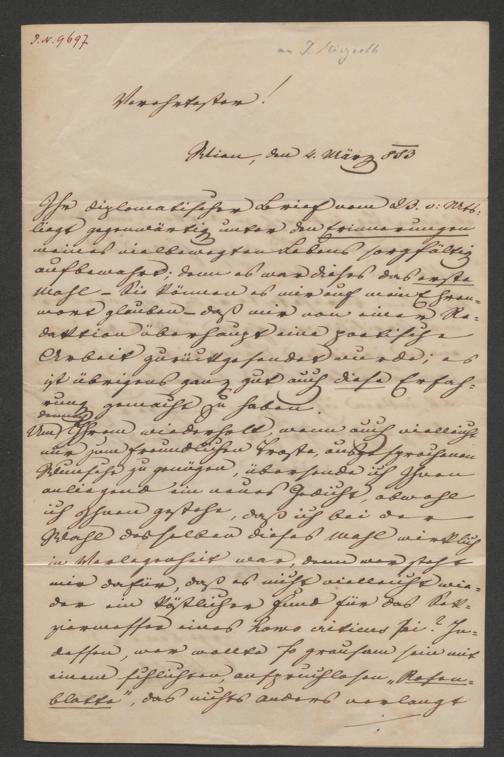 J.N. 9697
an J.
Verehrtester!
Wien, den 4. März 883
Ihr diplomatischer Brief vom 23. v: Mts:
liegt gegenwärtig unter den Erinnerungen
meines vielbewegten Lebens sorgfältig
aufbewahrt; denn es war dieses das erste
Mahl – Sie können es mir auf mein Ehren-
wort glauben – daß mir von einer Re-
daktion überhaupt eine poetische
Arbeit zurückgesendet wurde; es
ist übrigens ganz gut auch diese Erfah-
rung gemacht zu haben.
Um dennoch Ihrem wiederholt, wenn auch vielleicht
nur zum freundlichen Troste, ausgesprochenen
Wunsche zu genügen, übersende ich Ihnen
anliegend ein neues Gedicht, obwohl
ich Ihnen gestehe, daß ich bei der
Wahl desselben dieses Mahl wirklich
in Verlegenheit war, denn wer steht
mir dafür, daß es nicht vielleicht wie-
der ein köstlicher Fund für das Sek-
ziermesser eines homo criticus sei? In-
dessen, wer wollte so grausam sein mit
einem schlichten, anspruchlosen „Rosen-
blatte", das nichts anders verlangt